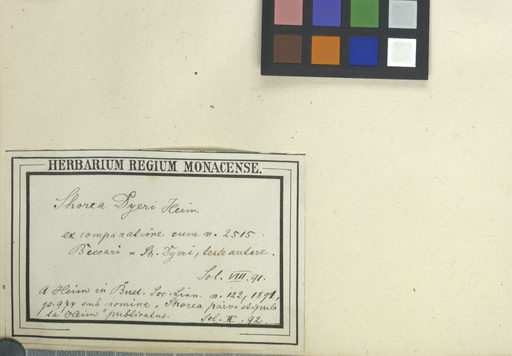 HERBARIUM REGIUM MONACENSE.
Shorea Dyeri Heim
ex comparatione cum n. 2515
Beccari = Sh. Dyeri, teste autore.
Sol. VIII. 91.
A Heim in Bull. Soc. Linn. n. 122, 1891,
p. 977 sub nomine "Shorea parvistipula
ta Heim" publicatus.
Sol. II. 92.